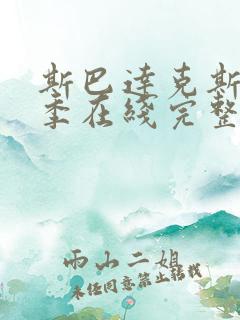 斯巴达克斯
季在线完整
雨山二姐
未经同意禁止转载